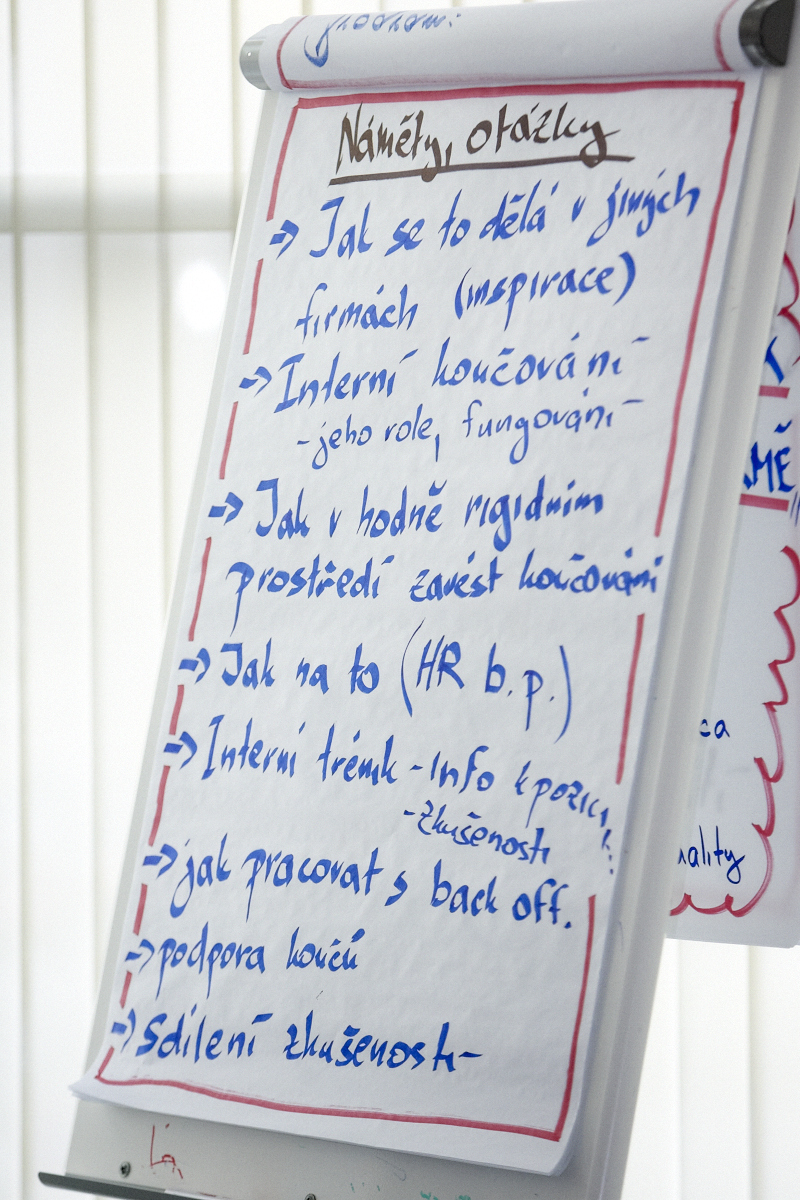 Náměty, otázky
→ Jak se to dělá v jiných
firmách (inspirace)
→ Interní koučování
- jeho role, fungování
→ Jak v hodně rigidním
prostředí zavést koučování
→ Jak na to (HR b.p.)
→ Interní trénik - Info k pozici,
- zkušenosti
→ jak pracovat s back off.
→ podpora koučů
→ Sdílení zkušenosti